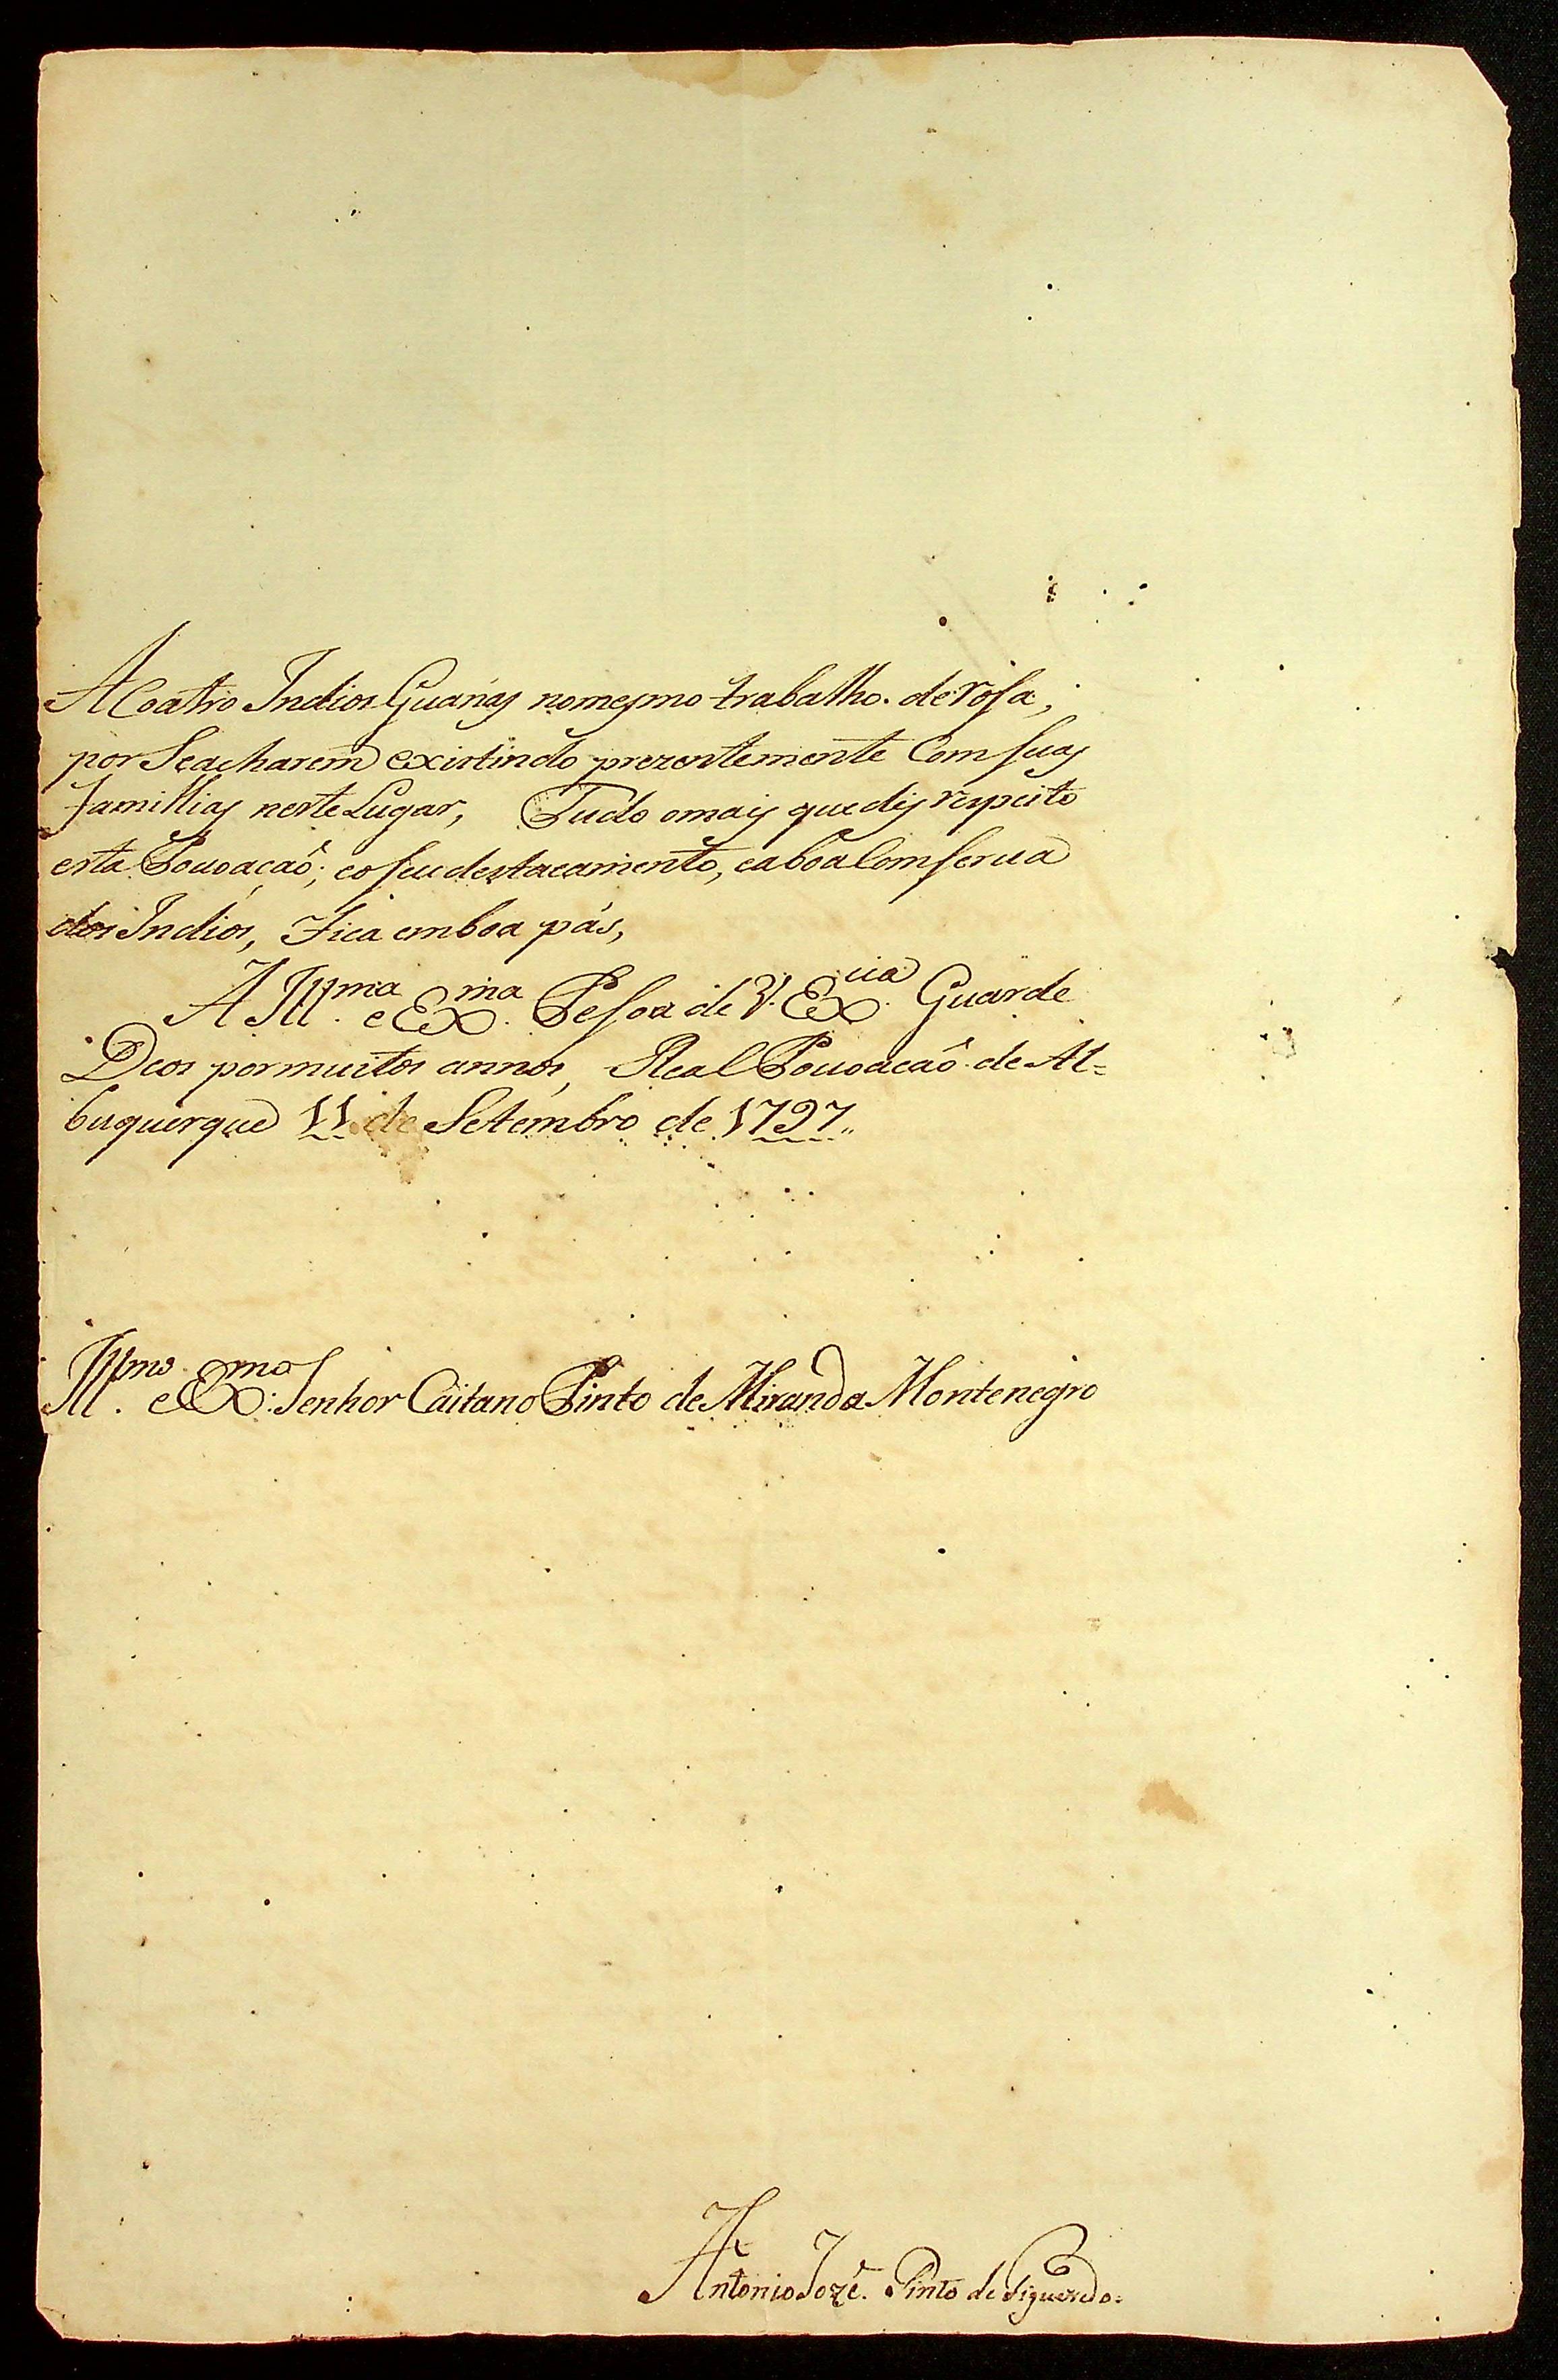 A Coatro Indios Guanás nomesmo trabalho. de rosa;
por Seacharem existindo prezentemente Com suas
familias neste Lugar, Tudo omais que dis respeito
esta Povoacaõ; eo seu destacamento, eaboa Comserua
dos Indios, Fica emboa pás,
A Ill.ma e Ex.ma Pesoa de V. Ex.cia Guarde
Deos pormuitos annos, Real Povoacaõ de Al=
buquerque 11 de Setembro de 1797,,
Ill.mo e Ex.mo Senhor Caitano Pinto de Miranda Montenegro
Antonio Jozé. Pinto de Figueredo.